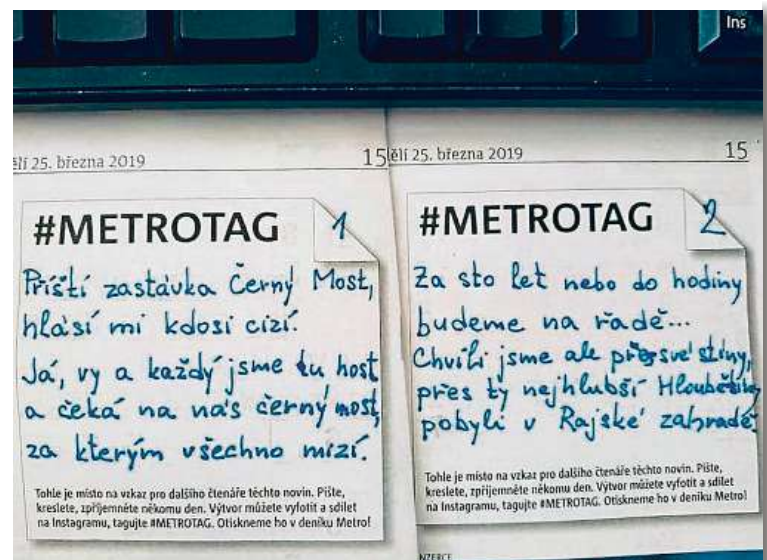 Ins
ělí 25. března 2019
15
#METROTAG
1
Příští zastávka Černý Most,
hlásí mi kdosi cizí.
Já, vy a každý jsme tu host
a čeká na nás černý most,
za kterým všechno mizí.
Tohle je místo na vzkaz pro dalšího čtenáře těchto novin. Pište,
kreslete, zpříjemněte někomu den. Výtvor můžete vyfotit a sdílet
na Instagramu, tagujte #METROTAG. Otiskneme ho v deníku Metro!
ělí 25. března 2019
15
#METROTAG
2
Za sto let nebo do hodiny
budeme na řadě...
Chvíli jsme ale přes své stíny,
přes ty nejhlubší Hloubětíny
pobyli v Rajské zahradě.
Tohle je místo na vzkaz pro dalšího čtenáře těchto novin. Pište,
kreslete, zpříjemněte někomu den. Výtvor můžete vyfotit a sdílet
na Instagramu, tagujte #METROTAG. Otiskneme ho v deníku Metro!
NZERCE